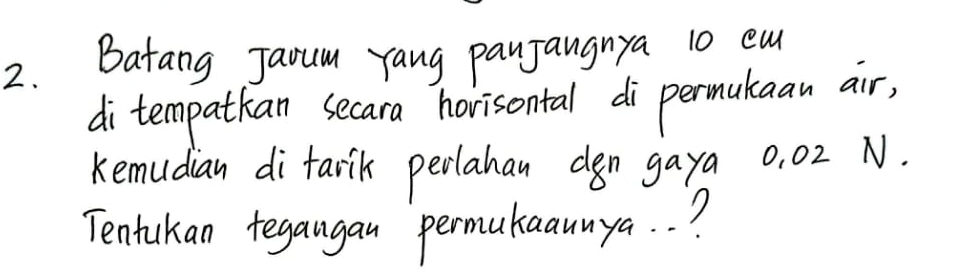 2. Batang Jarum yang panjangnya 10 cm
di tempatkan secara horisontal di permukaan air,
kemudian di tarik perlahan dgn gaya 0,02 N.
Tentukan tegangan permukaannya...?